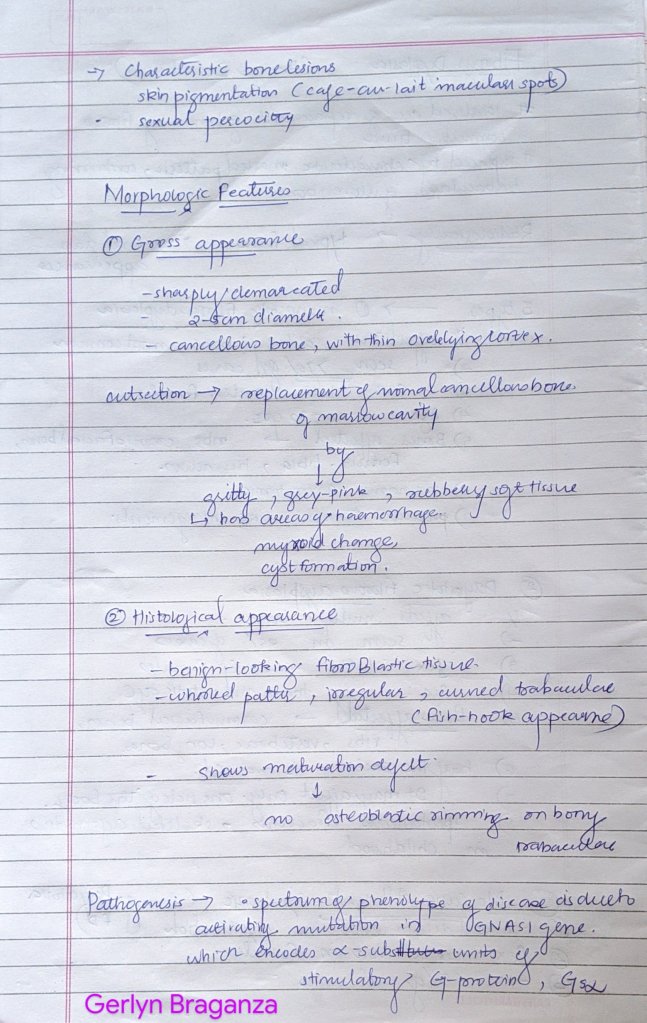 → Characteristic bone lesions
skin pigmentation (cafe-au-lait macular spots)
• sexual percocity
Morphologic Features
① Gross appearance
- sharply demarcated
- 2-5cm diameter.
- cancellous bone, with thin overlying cortex.
cutsection → replacement of normal cancellous bone.
of marrow cavity
by
↓
gritty, grey-pink, rubbery sgt tissue
↳ has areas of haemorrhage.
myxoid change,
cyst formation.
② Histological appearance
- benign-looking fibroBlastic tissue.
- whorled patter, irregular, curved trabaculae
(fish-hook appearne)
- shows maturation defect.
↓
no osteoblastic rimming on bony
trabaculae
Pathogenesis → • spectrum of phenotype of disease is due to
activating mutation in GNAS1 gene.
which encodes α-sub units of
stimulatory G-protein, Gsα
Gerlyn Braganza